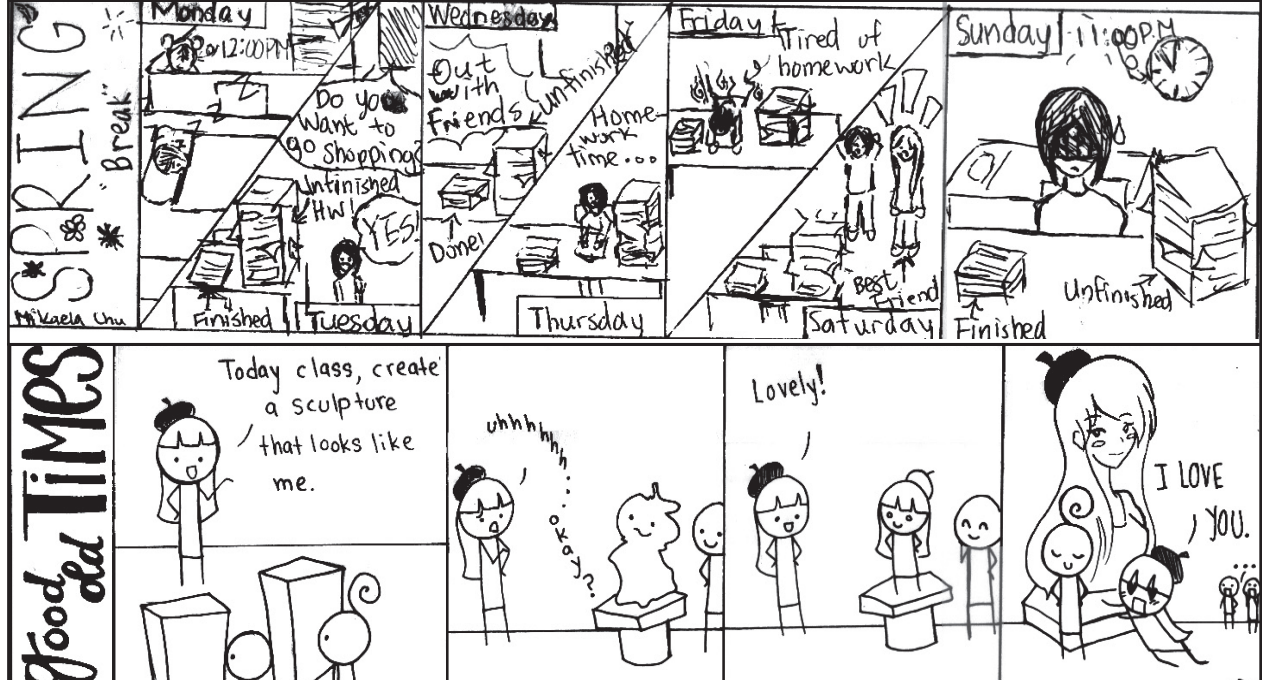 SPRING
"Break"
Mikaela Chu
Monday
@12:00PM
Do you
want to
go shopping?
Unfinished
HW!
YES!
Finished
Tuesday
Wednesday
Out
with
Friends
Unfinished
Done!
Home-
work
time...
Thursday
Friday
Tired of
homework
Best
Friend
Saturday
Sunday
11:00P.M
Unfinished
Finished
good old TiMES
Today class, create
a sculpture
that looks like
me.
uhhhhhh... okay?
Lovely!
I LOVE
YOU.
...